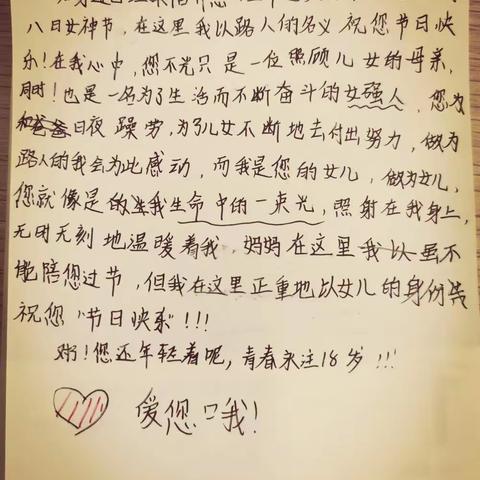 八日女神节，在这里我以路人的名义祝您节日快
乐！在我心中，您不光只是一位照顾儿女的母亲，
同时！也是一名为了生活而不断奋斗的女强人，您为
和爸爸日夜躁劳，为了儿女不断地去付出努力，做为
路人的我会为此感动，而我是您的女儿，做为女儿，
您就像是的我生命中的一束光，照射在我身上，
无时无刻地温暖着我，妈妈在这里我以虽不
能陪您过节，但我在这里正重地以女儿的身份
祝您“节日快乐”!!!
您还年轻着呢，青春永注18岁!!!
爱您 我！